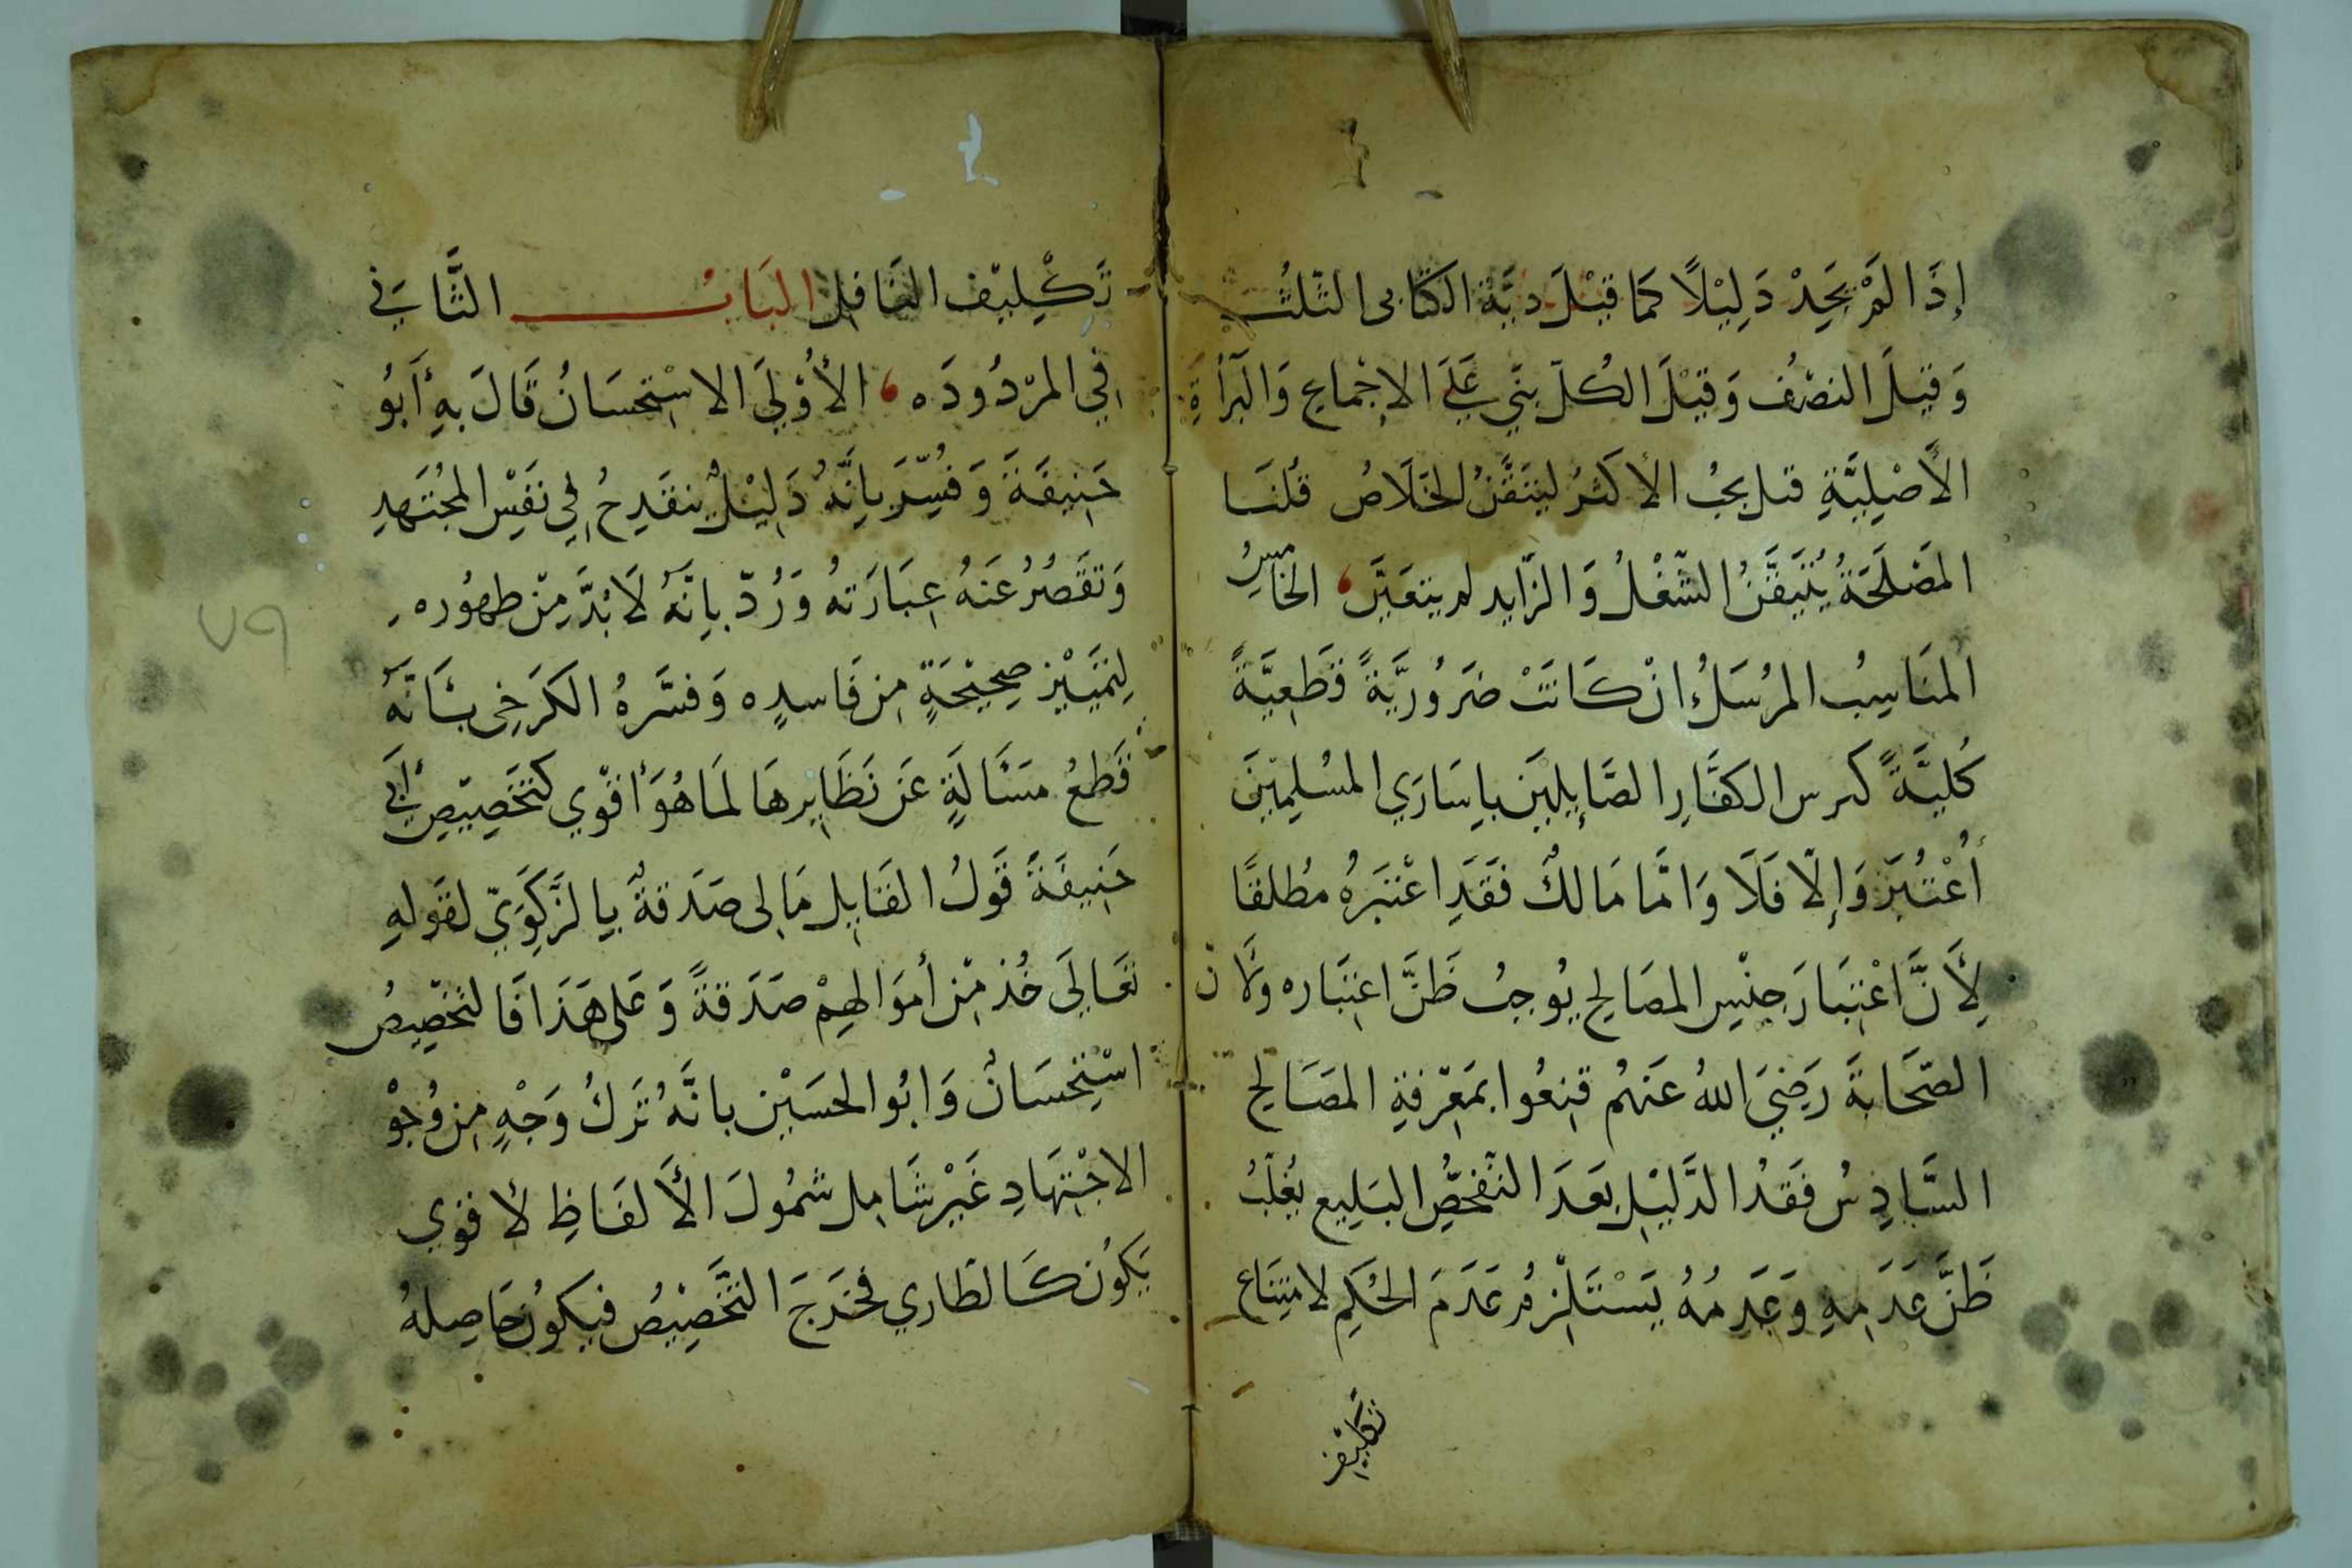 إِذَا لَمْ يَجِدْ دَلِيْلًا كَمَا قِيْلَ دِيَة الكتابى الثلُثُ
وَقِيلَ النصْفُ وَقِيْلَ الكُلّ بنَي عَلَى الاِجْمَاعِ وَالبَرَأةِ
الأَصْلِيَّةِ قيل يجبُ الأكثرُ ليتَيَقَّنُ الخَلَاصُ قُلْنَا
المَصْلَحَةُ يُتَيَقَّنُ الشّغْلُ وَالزّايد لم يتعَيَّن، الخَامِسُ
المنَاسِبُ المرُسَلُ انْ كَانَتْ ضَرُورِيَّةً قَطعِيَّةً
كُليَّةً كترس الكفّارِ الصَّايِلِيْنَ بِاسَارَي المسُلِمِيْنَ
أُعْتُبِرَ وَإِلّا فَلَا وَامَّا مَالكٌ فَقَدِ اعْتَبَرهُ مطُلقًا
لِأَنَّ اعْتِبَارَ جِنْسِ المصَالِحِ يُوجبُ ظَنَّ اعتِبَاره ولأن
الصّحَابَةَ رَضِيَ اللهُ عَنهُم قنِعُوا بمَعِرْفةِ المصَالِح
السَّادِسُ فَقدُ الدَّليْلِ بَعدَ التّفحُّصِ البَليغ يغُلّبُ
ظَنَّ عَدَمِهِ وَعَدِمُهُ يَسْتَلْزِمُ عَدَمَ الحُكِم لامتِنَاع
تَكليْف
تَكْلِيْف الغَافِل البَابُ الثَّانِي
فِي المرْدُودَه، الأُوْلَي الاسْتِحسَانُ قَالَ بهِ أَبُو
حَنِيفَةَ وَفُسِّرَ بِاَنَّهُ دَلِيْلٌ ينقَدِحُ فِي نفَسْ المجُتَهدِ
وَتقَصُرُ عَنهُ عِبَارَتهُ وَرُدّ بِانّهُ لَا بُدَّ مِنْ ظهُوره
لِتمَيِيْز صِحِيْحَةٍ مِن فَاسدِه وَفسَّرهُ الكَرَخِى بأَنّهُ
قَطعُ مسَألَةٍ عَن نَظَايِرهَا لمَاهُوَ أقوّي كتخَصِيْصِ أَبي
حَنِيفَةَ قَولُ القَايِل مَالِى صَدَقةٌ بِالزَّكوَيّ لقوَلهِ
تعَالَي خُذ مِن أموَالهِمْ صدَقةً وَعَلى هَذَا فَالتخَصِّيصُ
اسْتِحْسَانٌ وَابُو الحسَيْن بانَّهُ تَرَكُ وَجْهٍ مِن وُجوْ
الاجْتِهَادِ غَيْر شَامِل شمُولَ الأَلفَاظِ لأ قوي
يَكونُ كَالطَاري فخَرَجَ التَّخصِيْصُ فيَكونُ حَاصِلهُ